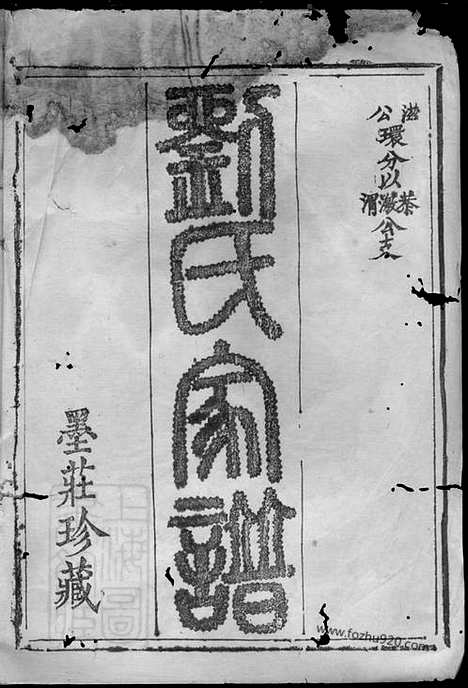 滋
公環分以恭
滋公支
渭
劉氏家譜
墨莊珍藏
上海圖
www.fozhu920.com